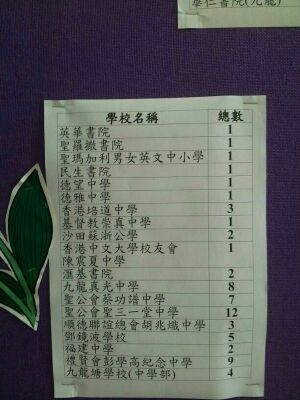 華仁書院(九龍)
學校名稱 總數
英華書院 1
聖羅撒書院 1
聖瑪加利男女英文中小學 1
民生書院 1
德望中學 1
德雅中學 1
香港培道中學 3
基督教崇真中學 1
沙田蘇浙公學 2
香港中文大學校友會 1
陳震夏中學
滙基書院 2
九龍真光中學 8
聖公會蔡功譜中學 7
聖公會聖三一堂中學 12
順德聯誼總會胡兆熾中學 3
鄧鏡波學校 5
福建中學 2
禮賢會彭學高紀念中學 9
九龍塘學校(中學部) 4